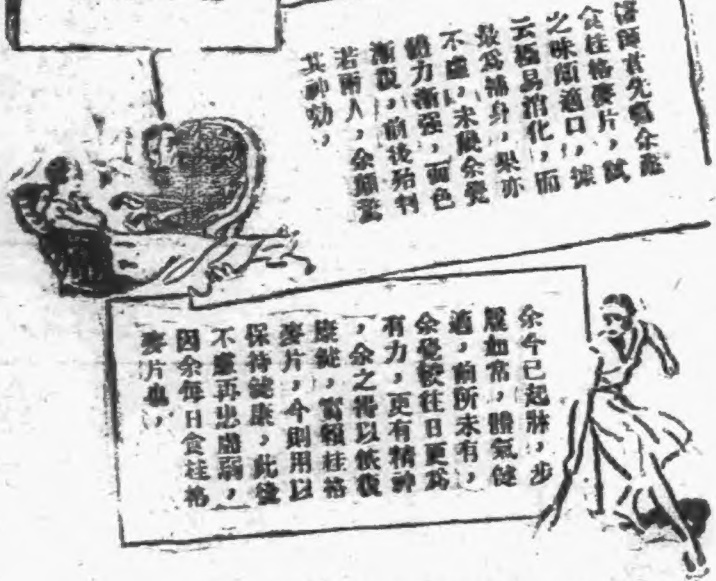 醫師首先囑余雖
食桂格麥片，試
之味頗適口，據
云極易消化，而
最爲補身，果亦
不虛，未幾余覺
體力漸强，面色
漸復，前後殆判
若兩人，余頗驚
其神効，
余今已起牀，步
履如常，體氣健
適，前所未有，
余覺較往日更爲
有力，更有精神
，余之得以恢復
康健，實賴桂格
麥片，今則用以
保持健康，此後
不慮再患虛弱，
因余每日食桂格
麥片也，